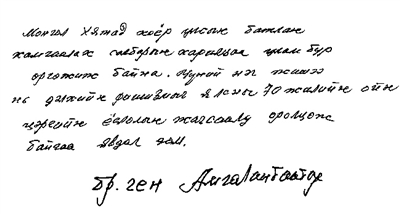 Монгол Хятад хоёр улсын батлан
хамгаалах салбарын харилцаа улам бүр
өргөжиж байна. Үүний нэг жишээ
нь дэлхийн фашизмыг ялсны 70 жилийн ойн
цэргийн ёслолын жагсаалд оролцож
байгаа явдал юм.
бр. ген Амгаланбаатар